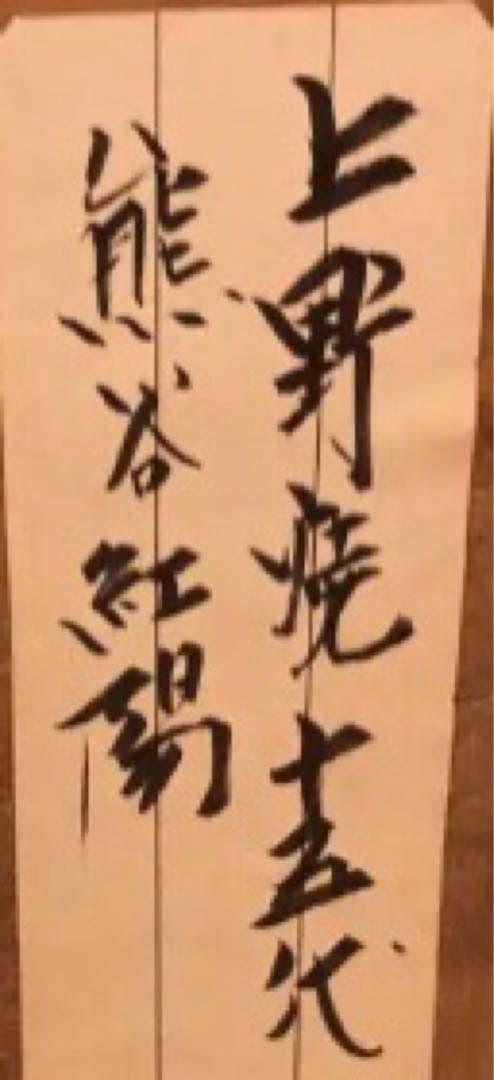 上野焼十五代
熊谷紅陽